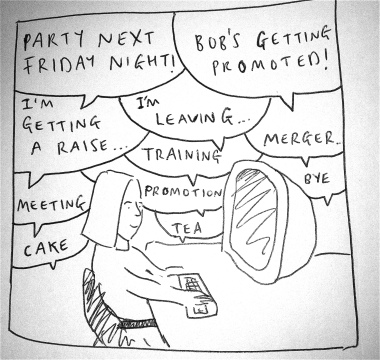 PARTY NEXT
FRIDAY NIGHT!
BOB'S GETTING
PROMOTED!
I'M
GETTING
A RAISE...
I'M
LEAVING...
MERGER..
TRAINING
BYE
MEETING
PROMOTION
TEA
CAKE